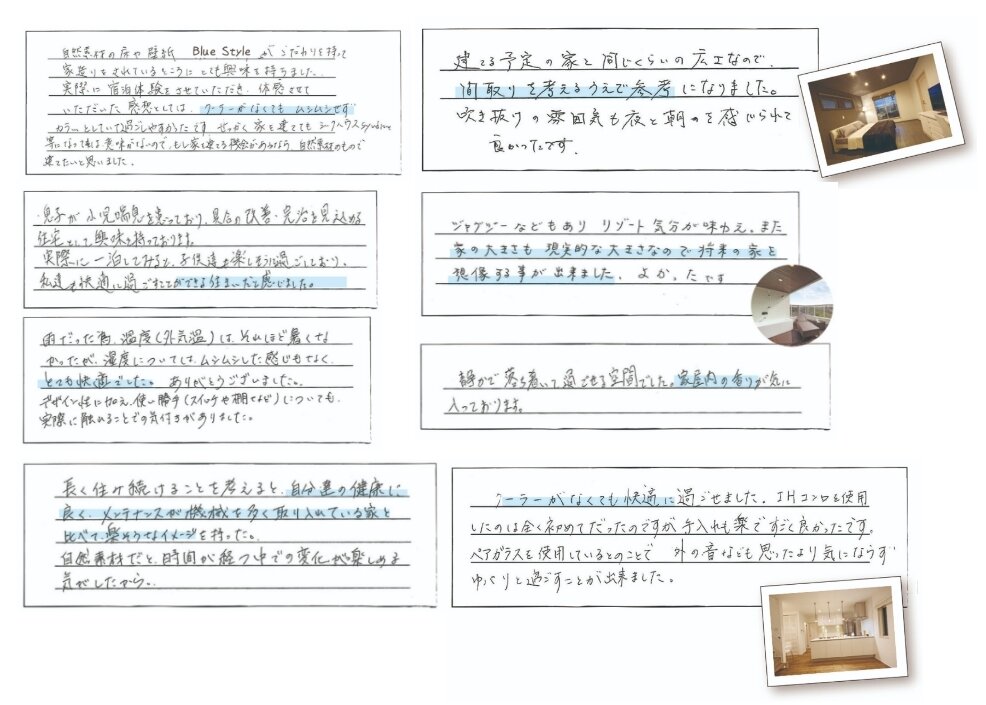 自然素材の床や壁紙 Blue Style がこだわりを持って
家造りをされているところにとても興味を持ちました。
実際に宿泊体験をさせていただき、体感させて
いただいた感想としては、クーラーがなくてもムシムシせず
カラッとしていて過ごしやすかったです せっかく家を建ててもシックハウスsyndrome
等になっては意味がないので、もし家を建てる機会があるなら、自然素材のもので
建てたいと思いました。
建てる予定の家と同じくらいの広さなので、
間取りを考えるうえで参考になりました。
吹き抜けの雰囲気も夜と朝のを感じられて
良かったです。
・息子が小児喘息を患っており、具合の改善・完治を見込める
住宅として、興味を持っております。
実際に一泊してみると、子供達も楽しそうに過ごしており、
私達も快適に過ごすことができる住まいだと感じました。
ジャグジーなどもあり リゾート気分が味わえ、また
家の大きさも 現実的な大きさなので将来の家を
想像する事が出来ました。よかったです
雨だった為、温度(外気温)は、それほど暑くな
かったが、湿度については、ムシムシした感じもなく、
とても快適でした。ありがとうございました。
デザイン性に加え、使い勝手(スイッチや棚など)についても、
実際に触れることでの気付きがありました。
静かで落ち着いて過ごせる空間でした。家屋内の香りが気に
入っております。
長く住み続けることを考えると、自分達の健康に
良く、メンテナンスが機械を多く取り入れている家と
比べて、楽そうなイメージを持った。
自然素材だと、時間が経つ中での変化が楽しめる
気がしたから。
クーラーがなくても快適に過ごせました。IHコンロを使用
したのは全く初めてだったのですが手入れも楽ですごく良かったです。
ペアガラスを使用しているとのことで 外の音なども思ったより気にならず
ゆっくりと過ごすことが出来ました。